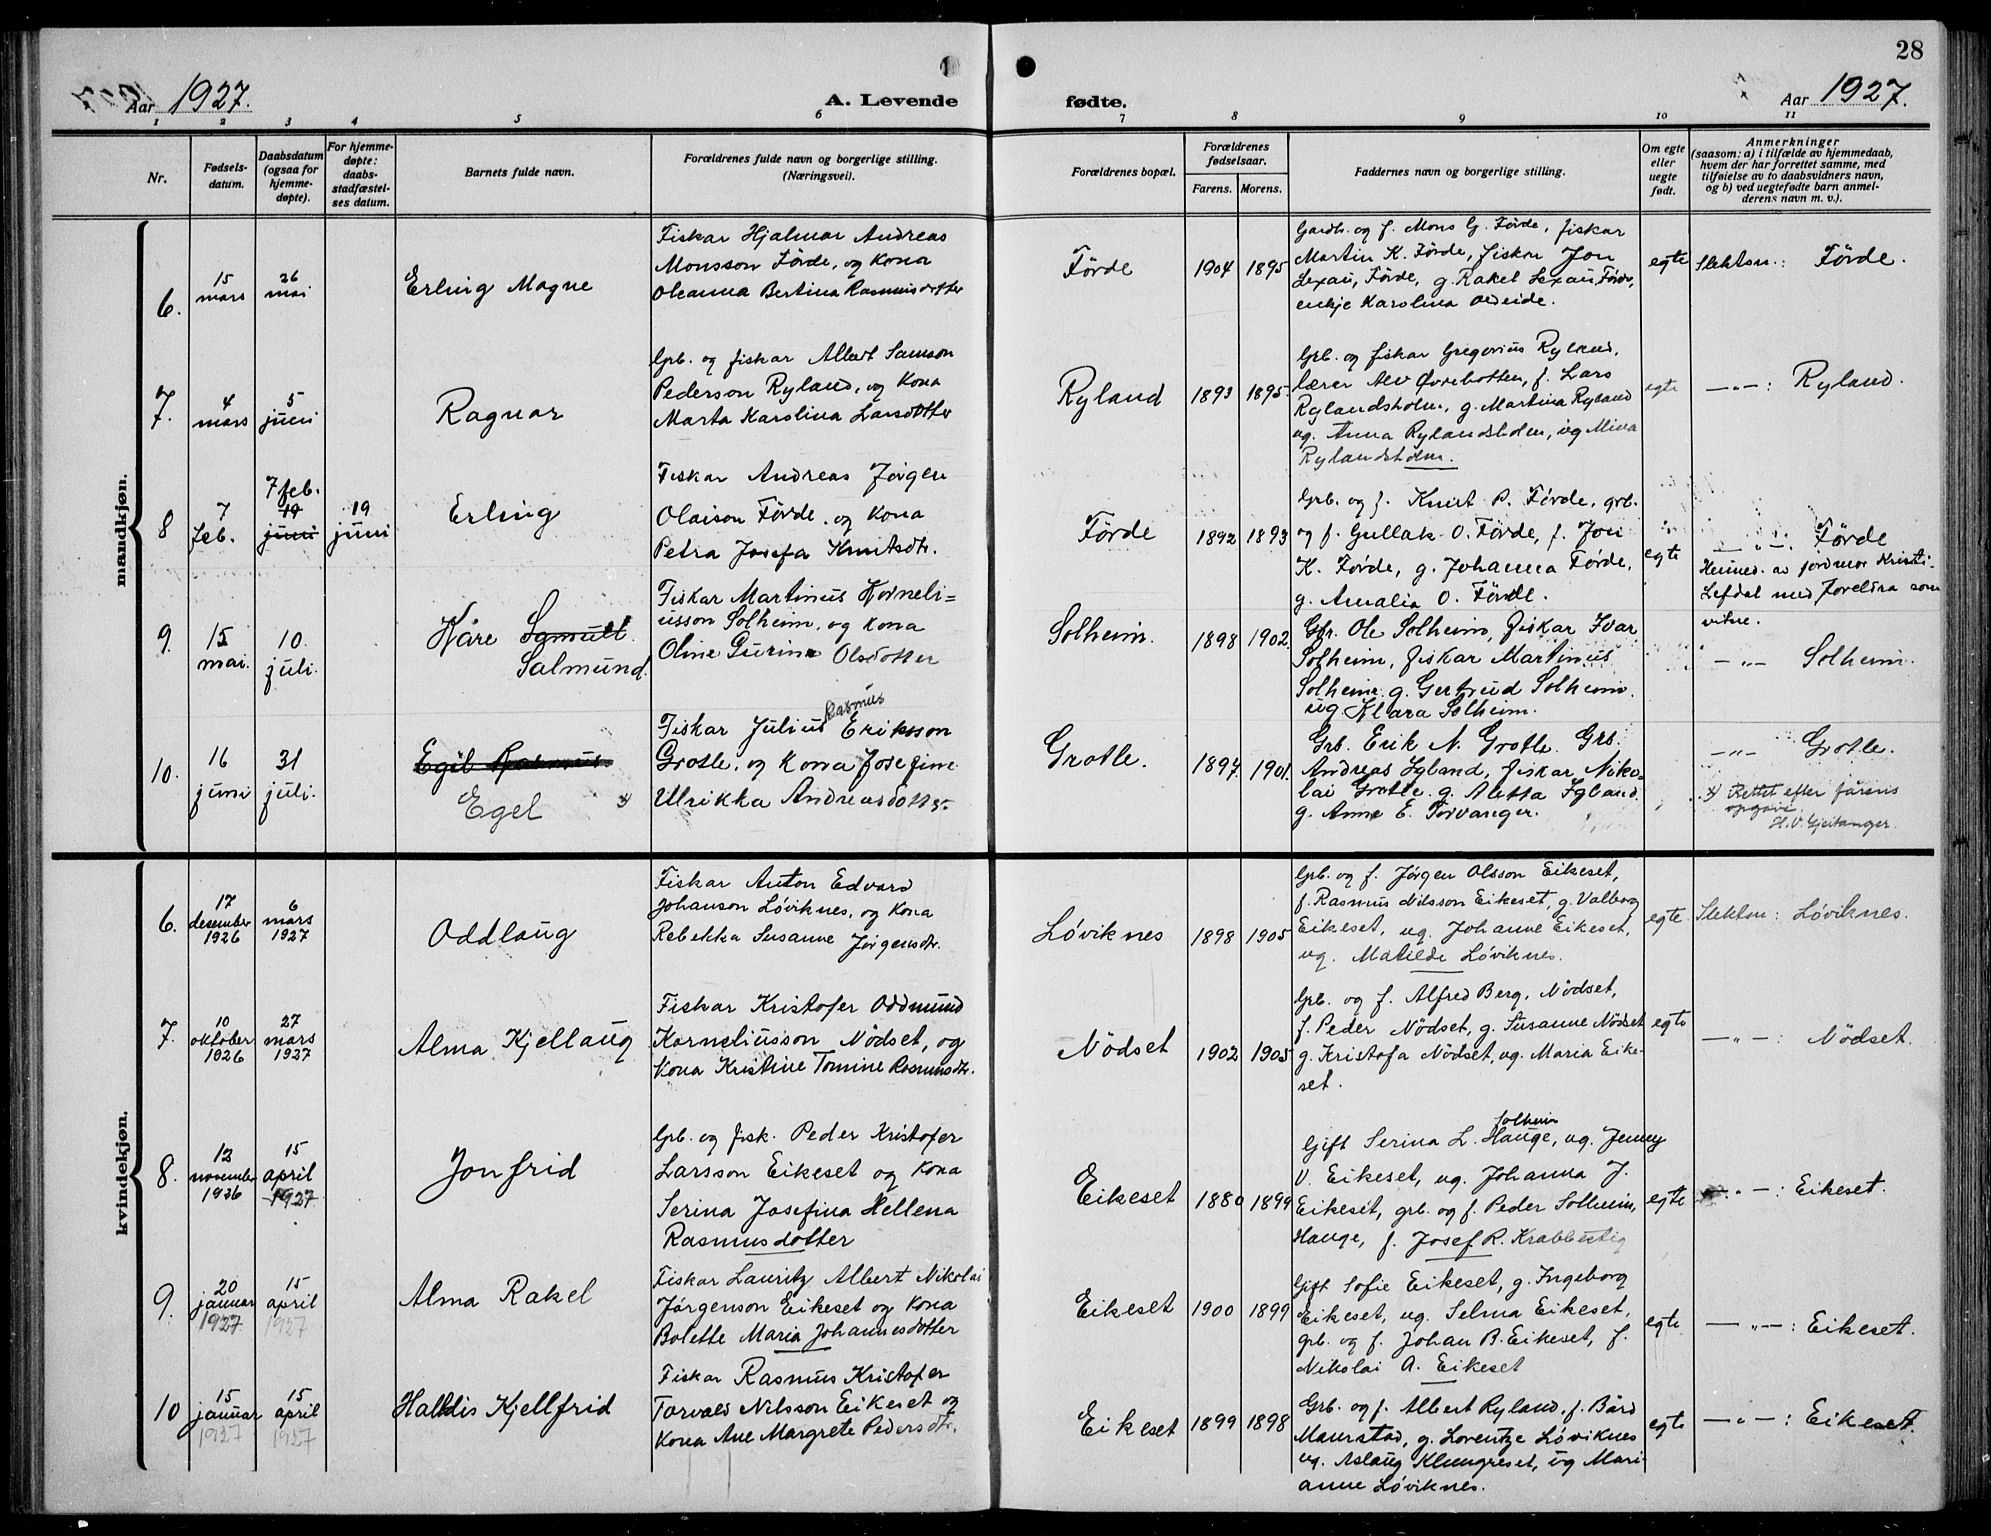 28
Aar 1927.
A. Levende
fødte.
Aar 1927.
1 2 3 4 5 6 7 8 9 10 11
Nr.
Fødsels-
datum.
Daabsdatum
(ogsaa for
hjemme-
døpte).
For hjemme-
døpte:
daabs-
stadfæstel-
ses datum.
Barnets fulde navn.
Forældrenes fulde navn og borgerlige stilling.
(Næringsvei).
Forældrenes bopæl.
Forældrenes
fødselsaar.
Farens. Morens.
Faddernes navn og borgerlige stilling.
Om egte
eller
uegte
født.
Anmerkninger
(saasom: a) i tilfælde av hjemmedaab,
hvem der har forrettet samme, med
tilføielse av to daabsvidners navn,
og b) ved uegtefødte barn anmel-
derens navn m. v.).
mandkjøn.
6.
15
mars
26
mai
Erling Magne
Fiskar Hjalmar Andreas
Monsson Förde, og Kona
Oleanna Bertina Rasmusdotter
Förde
1904 1895
Gardb. og f. Mons G. Förde, fiskar
Martin K. Förde, fiskar Jon
Lexau, Förde, g. Rakel Lexau, Förde,
enkje Karolina Oldeide.
egte
Slektsn.: Förde.
7.
4
mars
5
juni
Ragnar
Grb. og fiskar Albert Samson
Pederson Ryland, og Kona
Marta Karolina Larsdotter
Ryland
1893 1895
Grb. og fiskar Gregorius Ryland,
lærer Alv Øvrebotten, f. Lars
Rylandsholm, g. Martina Ryland
ug. Anna Rylandsholm, ug Mina
Rylandsholm.
egte
—"—: Ryland.
8
7
feb.
7 feb.
19
juni
19
juni
Erling
Fiskar Andreas Jørgen
Olaison Förde, og Kona
Petra Josefa Knutsdtr.
Förde
1892 1893
Grb. og f. Knut P. Förde, grb.
og f. Gullak O. Förde, f. Jon
K. Förde, g. Johanna Förde,
g. Amalia O. Förde.
egte
—"—: Förde
Heimed. av jordmor Kristi-
Lefdal med foreldra som
vitne.
9.
15
mai.
10.
juli.
Kåre Samuel.
Salmund.
Fiskar Martinus Korneli=
usson Solheim, og Kona
Oline Gurine Olsdotter
Solheim.
1898 1902.
Gfr. Ole Solheim, fiskar Ivar
Solheim, fiskar Martinus
Solheim. g. Gertrud Solheim.
ug. Klara Solheim.
—"— Solheim.
10.
16
juni
31
juli.
Egil Rasmus.
Egel x)
Rasmus
Fiskar Julius Eriksson
Grotle, og Kona Josefine
Ulrikka Andreasdotter
Grotle.
1897. 1901.
Grb. Erik N. Grotle. Grb.
Andreas Igland, fiskar Niko-
lai Grotle. g. Aletta Igland.
g. Anne E. Torvanger.
—"— Grotle.
x) Rettet efter farens
opgave.
H. V. Gjeitanger.
kvindekjøn.
6.
17
desember
1926
6
mars
1927
Oddlaug
Fiskar Anton Edvard
Johanson Løviknes, og Kona
Rebekka Susanne Jørgensdtr.
Løviknes
1898 1905
Grb. og f. Jørgen Olsson Eikeset,
f. Rasmus Nilsson Eikeset, g. Valborg
Eikeset, ug. Johanne Eikeset,
ug. Matilde Løviknes.
egte
Slektsn: Løviknes.
7.
10
oktober
1926
27
mars
1927
Alma Kjellaug
Fiskar Kristofer Oddmund
Korneliusson Nödset, og
Kona Kristine Tomine Rasmusdtr.
Nödset
1902 1905
Grb. og f. Alfred Berg, Nödset,
f. Peder Nödset, g. Susanne Nödset
g. Kristofa Nödset, ug. Maria Eike-
set.
egte
—"—: Nödset.
8.
12
november
1926
15
april
1927
Jonfrid
Grb. og fisk. Peder Kristofer
Larsson Eikeset og Kona
Serina Josefina Hellena
Rasmusdotter
Eikeset
1880 1899
Solheim
Gift Serina L. Hauge, ug. Jenny
V. Eikeset, ug. Johanna J.
Eikeset, grb. og f. Peder Solheim,
Hauge, f. Josef R. Krabbestig
egte
—"—: Eikeset.
9.
20
januar
1927
15
april
1927
Alma Rakel
Fiskar Lauritz Albert Nikolai
Jørgenson Eikeset og Kona
Bolette Maria Johannesdotter
Eikeset
1900 1899
Gift Sofie Eikeset, g. Ingeborg
Eikeset, ug. Selma Eikeset,
grb. og f. Johan B. Eikeset, f.
Nikolai A. Eikeset
egte
—"—: Eikeset.
10
15
januar
1927
15
april
1927
Halldis Kjellfrid
Fiskar Rasmus Kristofer
Torvald Nilsson Eikeset og
Kona Ane Margrete Pedersdtr.
Eikeset
1899 1898
Grb. og f. Albert Ryland, f. Bård
Maurstad, g. Lorentze Løviknes
ug. Aslaug Klungreset, ug Mari-
anne Løviknes.
egte
—"—: Eikeset.